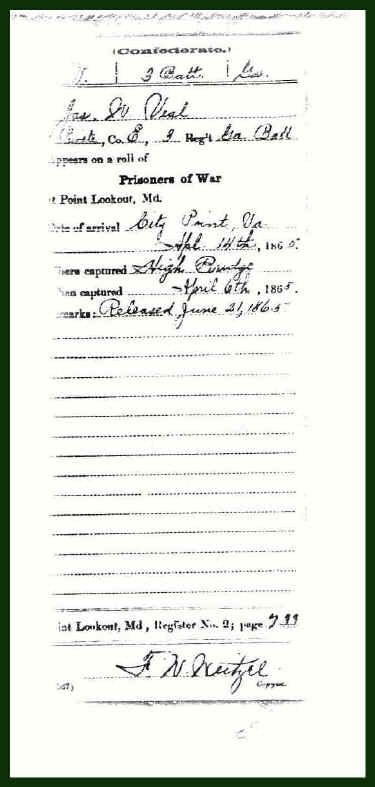 (Confederate.)
V. | 3 Batt. | Ga.
Jas. W Veal
Co. E, 3 Reg't Ga Batt
ppears on a roll of
Prisoners of War
t Point Lookout, Md.
te of arrival City Point, Va
Apl 14th, 1865.
here captured High Bridge
en captured April 6th, 1865.
marks: Released June 21, 1865
int Lookout, Md, Register No. 2; page
F. W. Weitzel
Copyist.